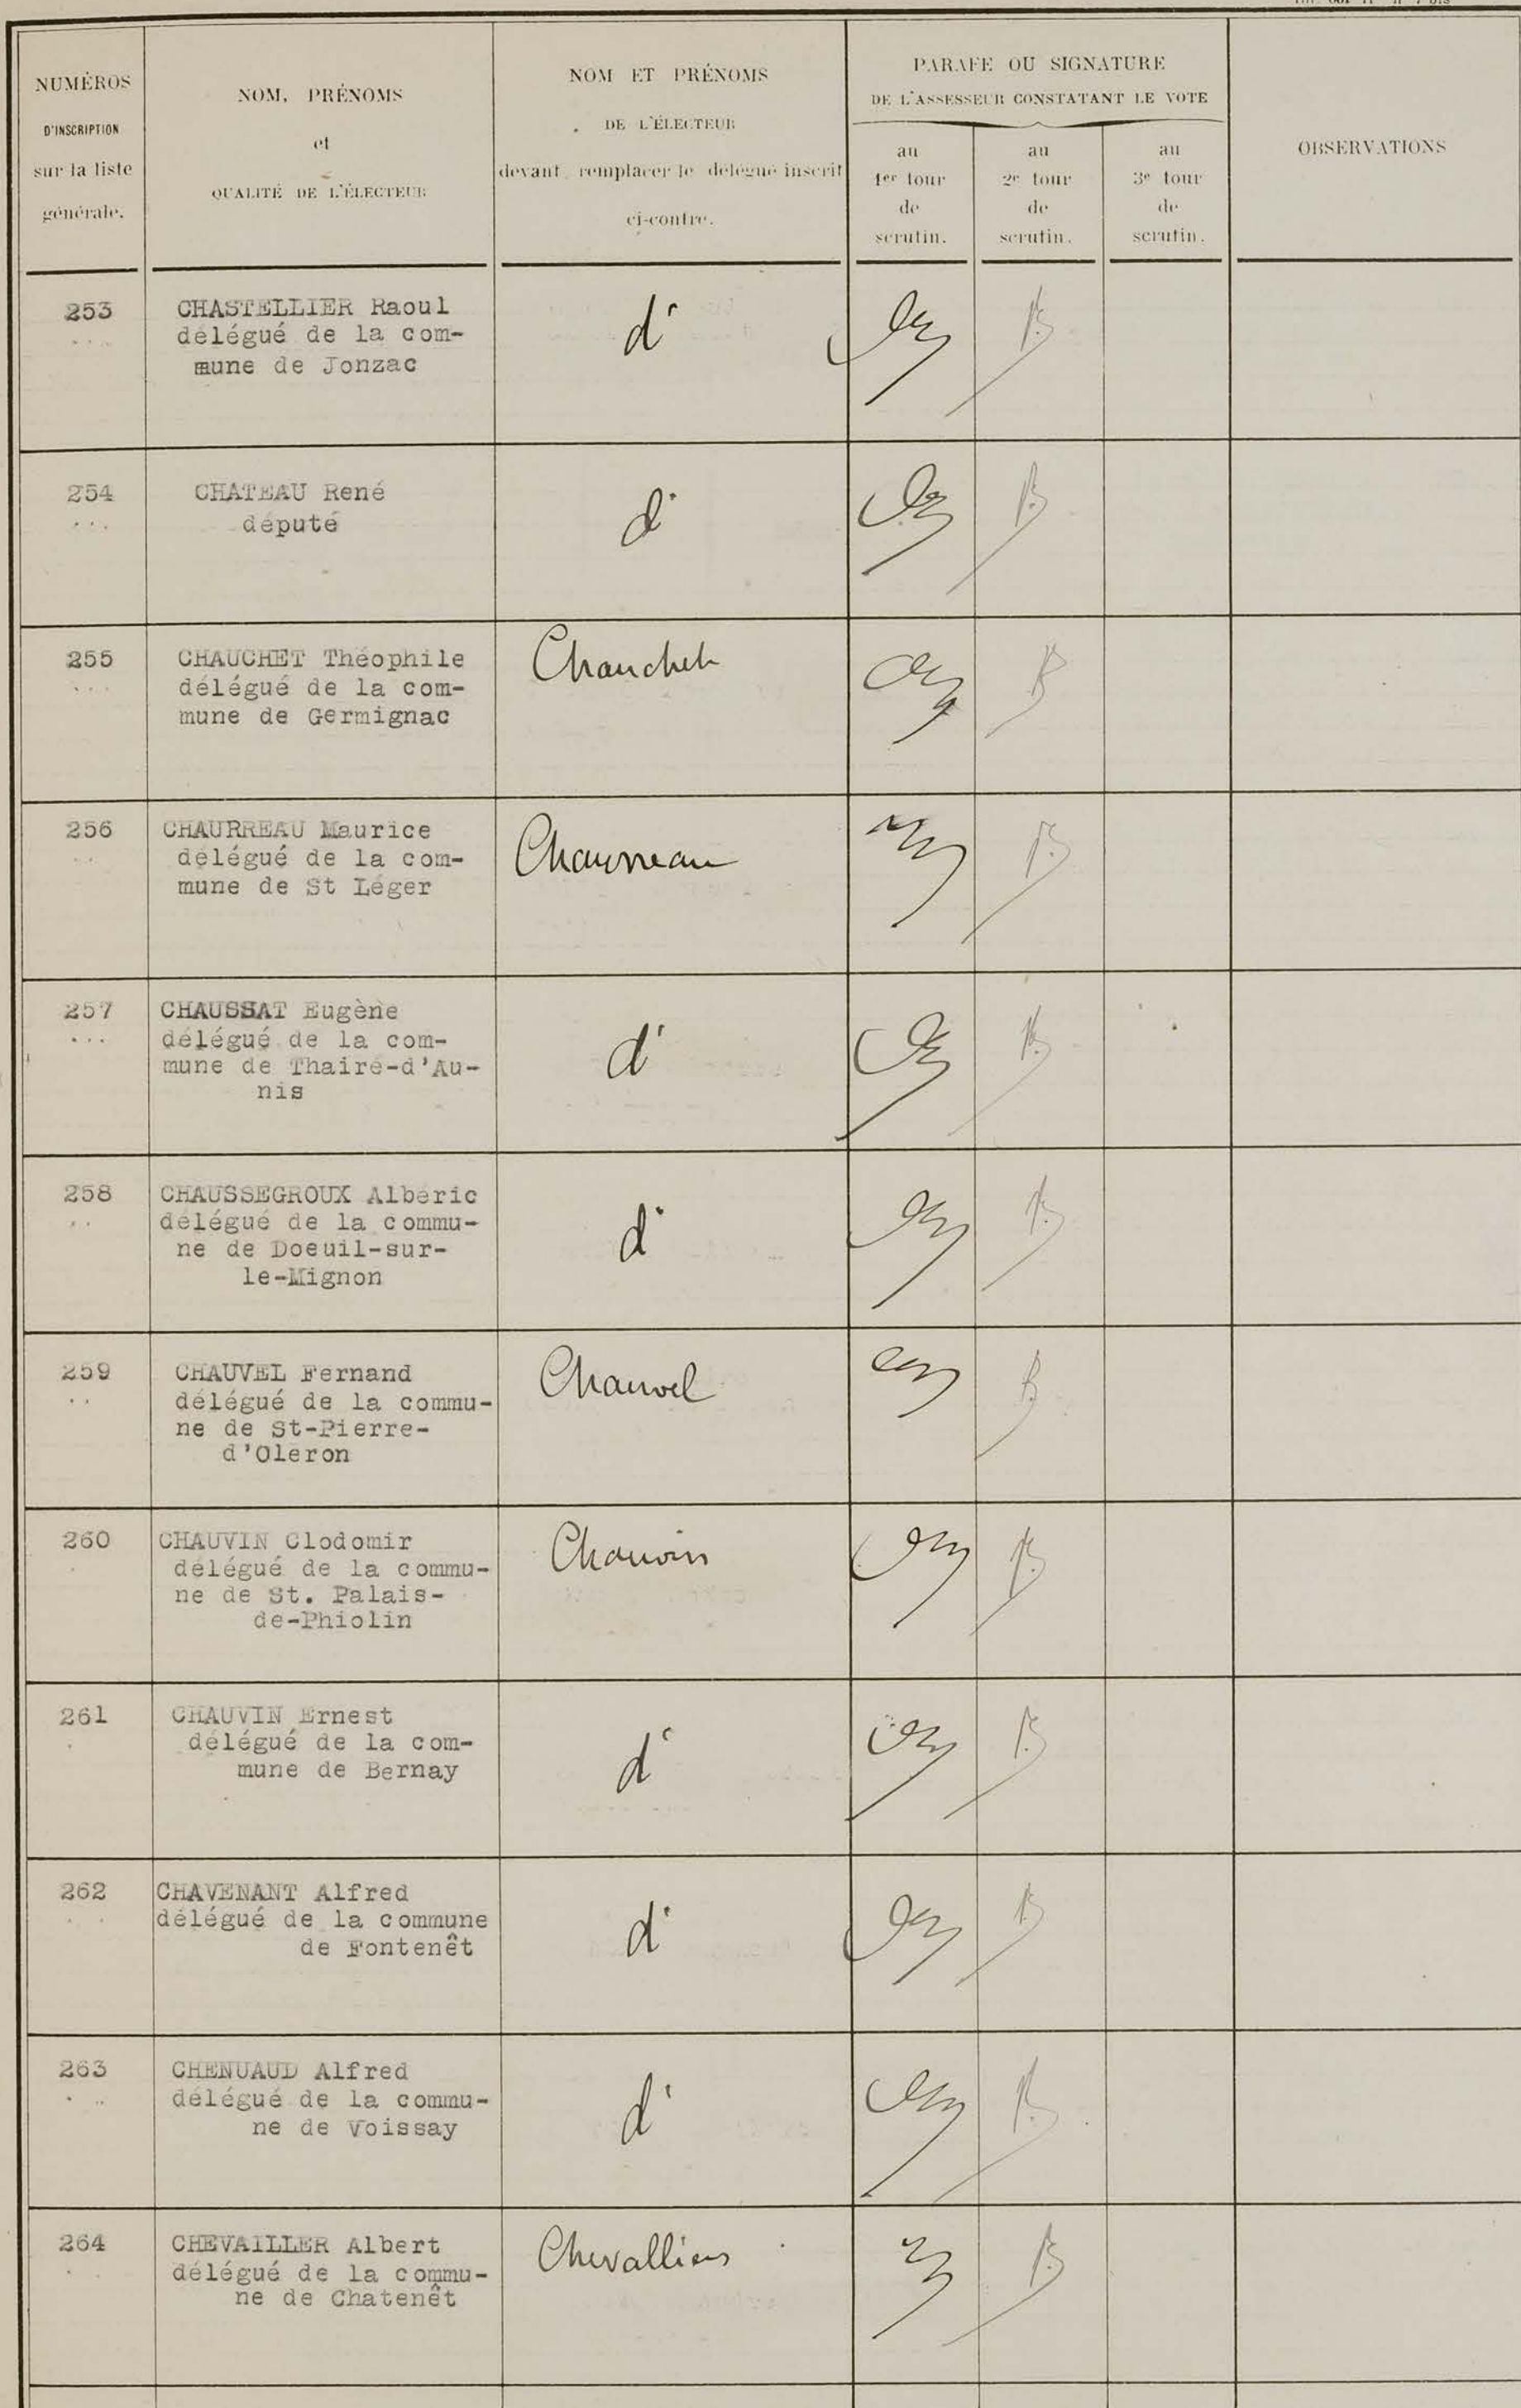 NUMÉROS
D'INSCRIPTION
sur la liste
générale.
NOM, PRÉNOMS
et
QUALITÉ DE L'ÉLECTEUR
NOM ET PRÉNOMS
DE L'ÉLECTEUR
devant remplacer le délégué inscrit
ci-contre.
PARAFE OU SIGNATURE
DE L'ASSESSEUR CONSTATANT LE VOTE
au
1er tour
de
scrutin.
au
2e tour
de
scrutin.
au
3e tour
de
scrutin.
OBSERVATIONS
253
CHASTELLIER Raoul
délégué de la com-
mune de Jonzac
d°
B
254
CHATEAU René
député
d°
B
255
CHAUCHET Théophile
délégué de la com-
mune de Germignac
Chauchet
B
256
CHAURREAU Maurice
délégué de la com-
mune de St Léger
Chaurreau
B
257
CHAUSSAT Eugène
délégué de la com-
mune de Thairé-d'Au-
nis
d°
B
258
CHAUSSEGROUX Albéric
délégué de la commu-
ne de Doeuil-sur-
le-Mignon
d°
B
259
CHAUVEL Fernand
délégué de la commu-
ne de St-Pierre-
d'Oleron
Chauvel
B
260
CHAUVIN Clodomir
délégué de la commu-
ne de St. Palais-
de-Phiolin
Chauvin
B
261
CHAUVIN Ernest
délégué de la com-
mune de Bernay
d°
B
262
CHAVENANT Alfred
délégué de la commune
de Fontenêt
d°
B
263
CHENUAUD Alfred
délégué de la commu-
ne de Voissay
d°
B
264
CHEVAILLER Albert
délégué de la commu-
ne de Chatenêt
Chevallier
B